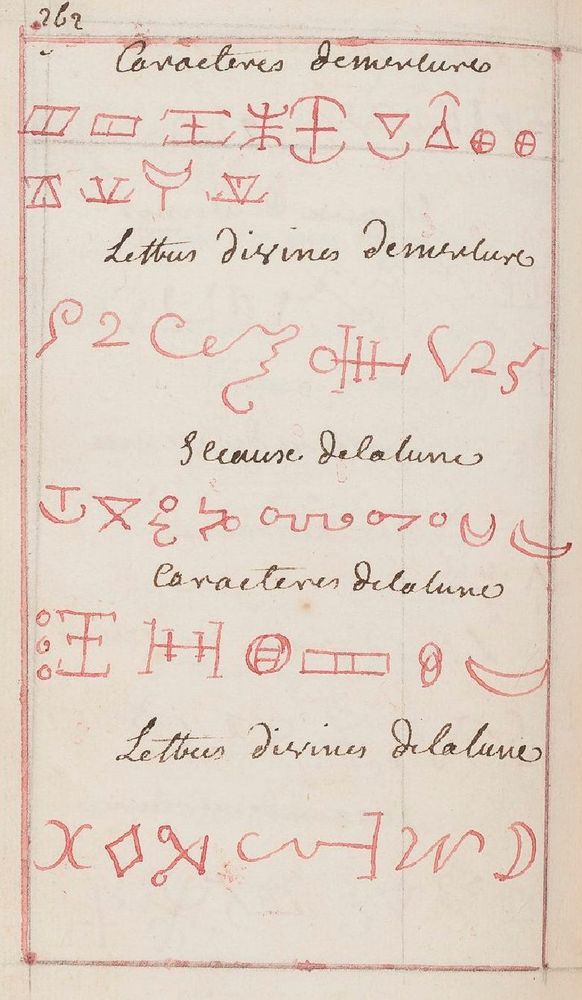 262
Caracteres demercure
Lettres divines demercure
Sceaux delalune
Caracteres delalune
Lettres divines delalune